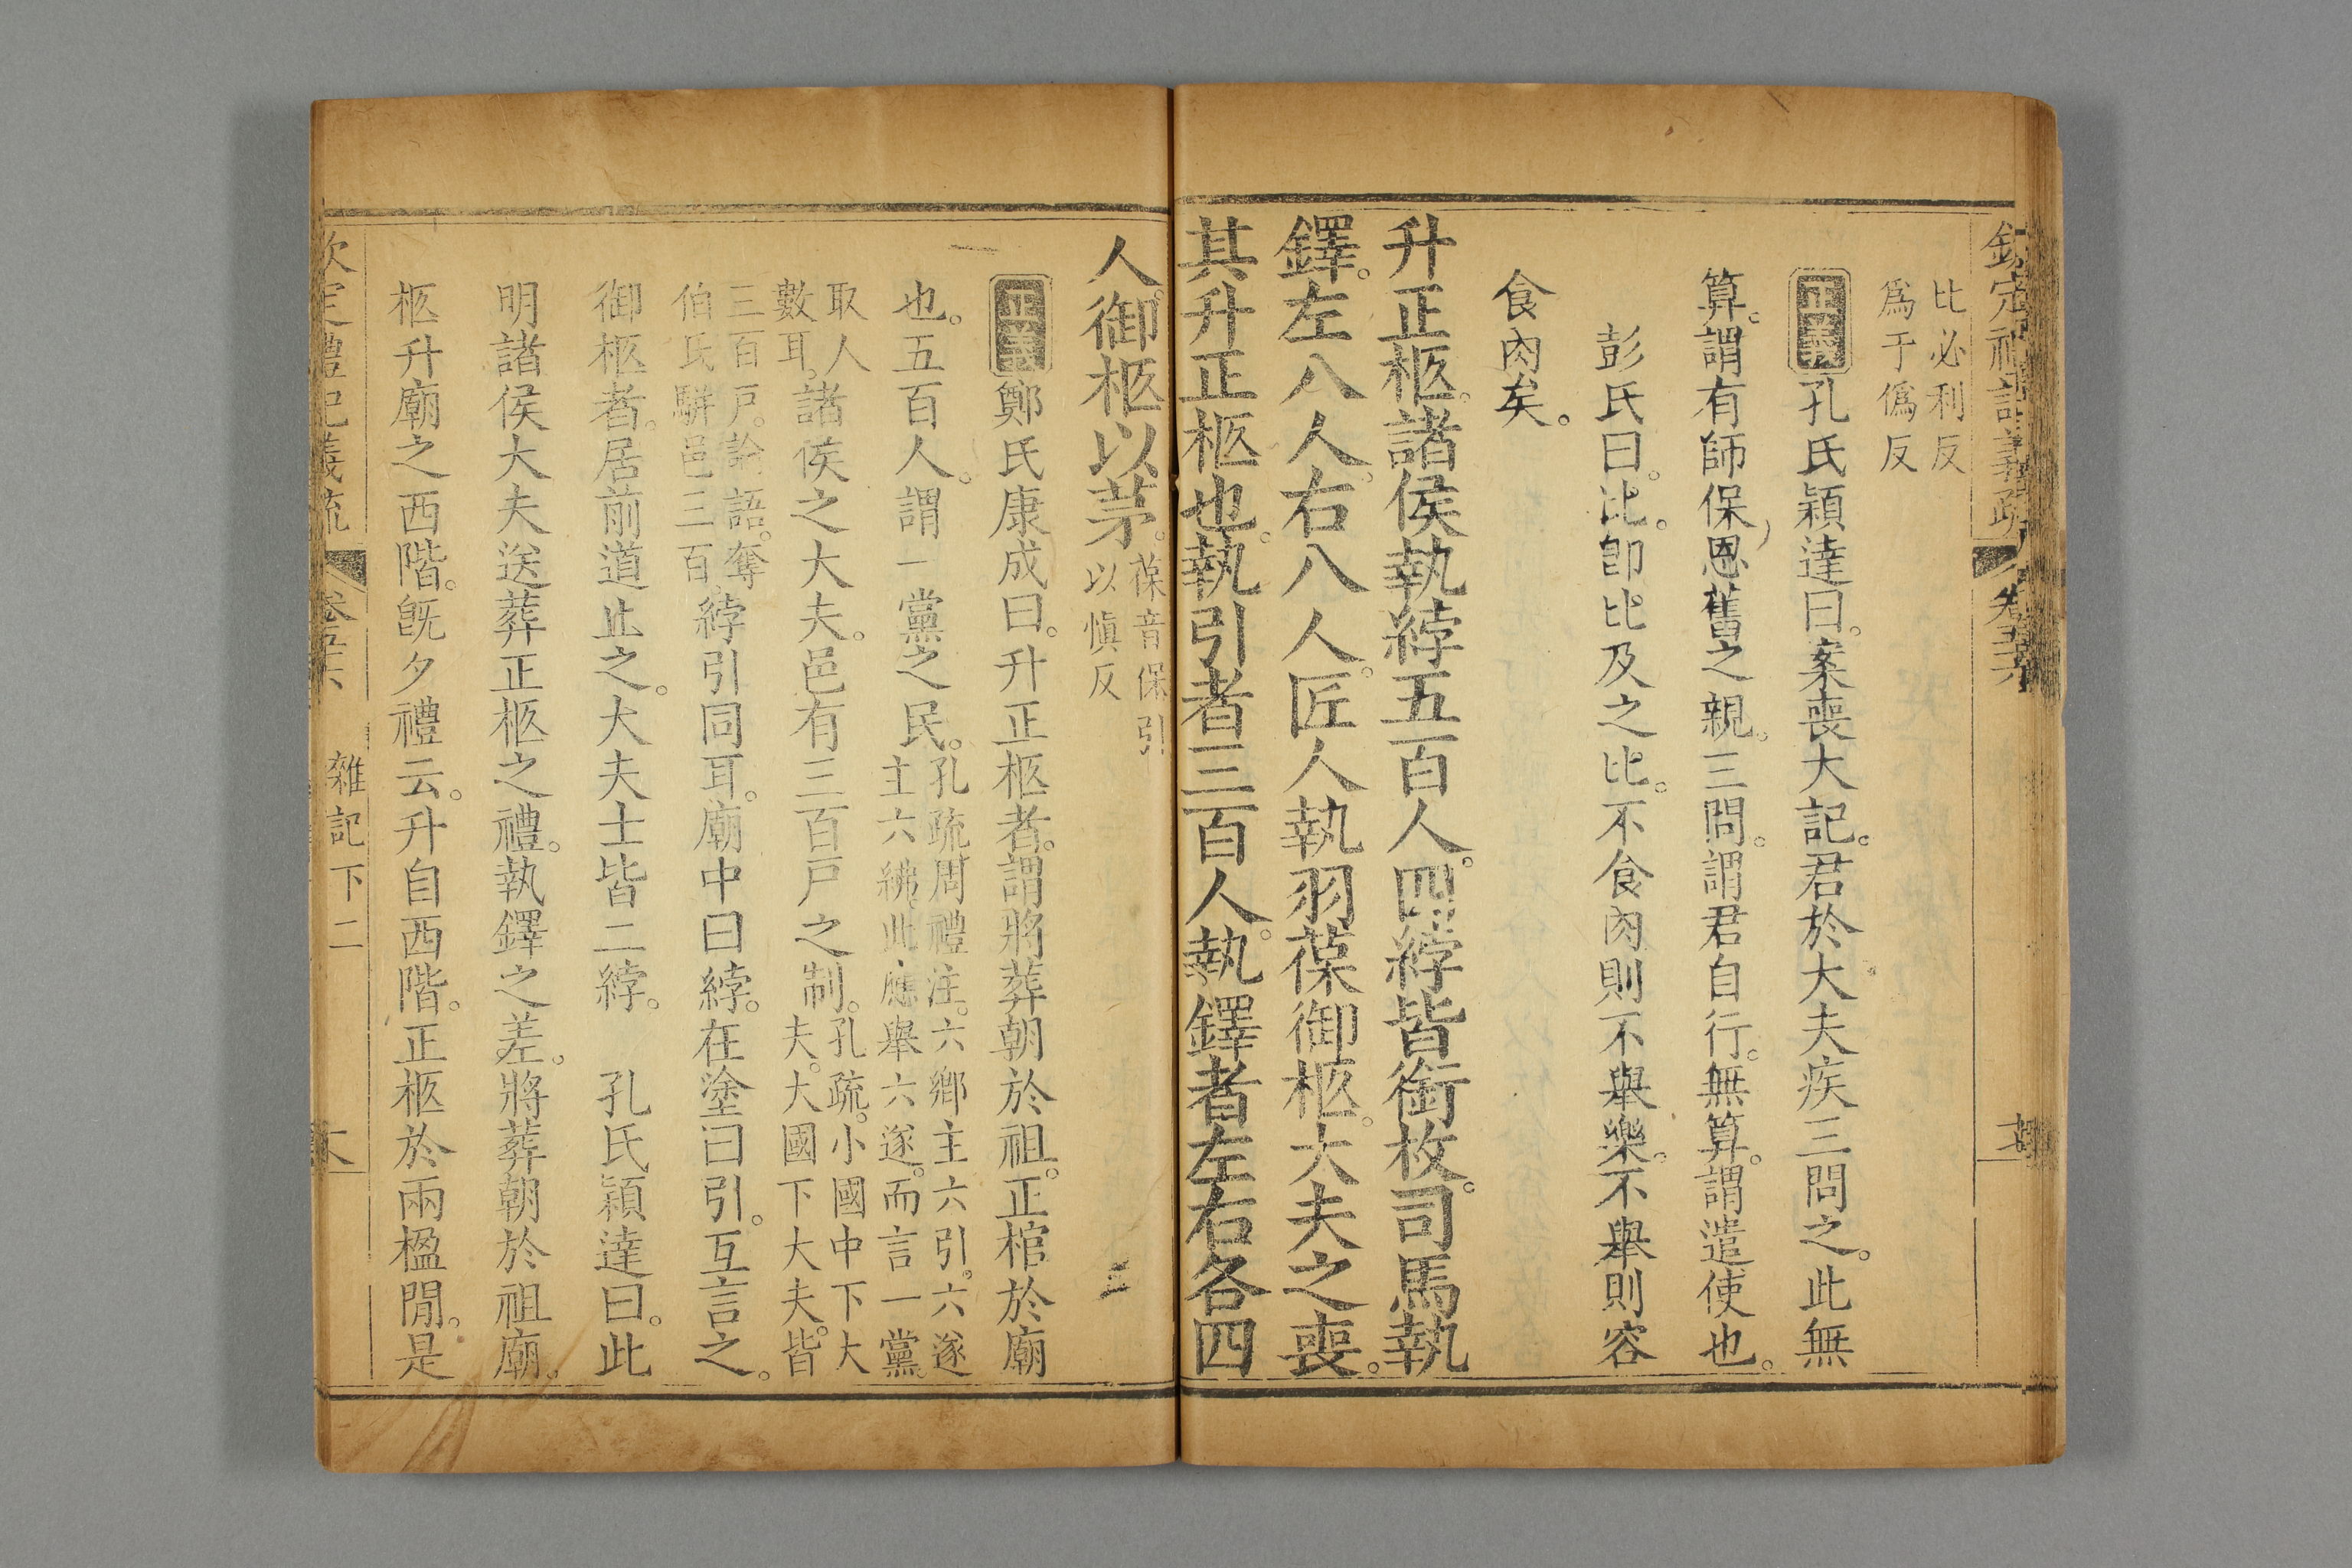 欽定禮記義疏 卷五十六
比必利反
爲于僞反
正義 孔氏穎達曰。案喪大記。君於大夫疾三問之。此無
算。謂有師保恩舊之親。三問。謂君自行。無算。謂遣使也。
彭氏曰。比。卽比及之比。不食肉則不舉樂。不舉則容
食肉矣。
升正柩。諸侯執綍五百人。四綍皆銜枚。司馬執
鐸。左八人。右八人。匠人執羽葆御柩。大夫之喪。
其升正柩也。執引者三百人。執鐸者左右各四
人。御柩以茅。
葆音保引
以愼反
正義 鄭氏康成曰。升正柩者。謂將葬朝於祖。正棺於廟
也。五百人。謂一黨之民。
孔疏周禮注。六鄉主六引。六遂
主六紼。此應舉六遂。而言一黨。
取人
數耳。
諸侯之大夫。邑有三百戶之制。
孔疏。小國中下大
夫。大國下大夫。皆
三百戶。論語。奪
伯氏騈邑三百。
綍引同耳。廟中曰綍。在塗曰引。互言之。
御柩者。居前道止之。大夫士皆二綍。 孔氏穎達曰。此
明諸侯大夫送葬正柩之禮。執鐸之差。將葬朝於祖廟。
柩升廟之西階。旣夕禮云。升自西階。正柩於兩楹閒。是
欽定禮記義疏 卷五十六 雜記下二